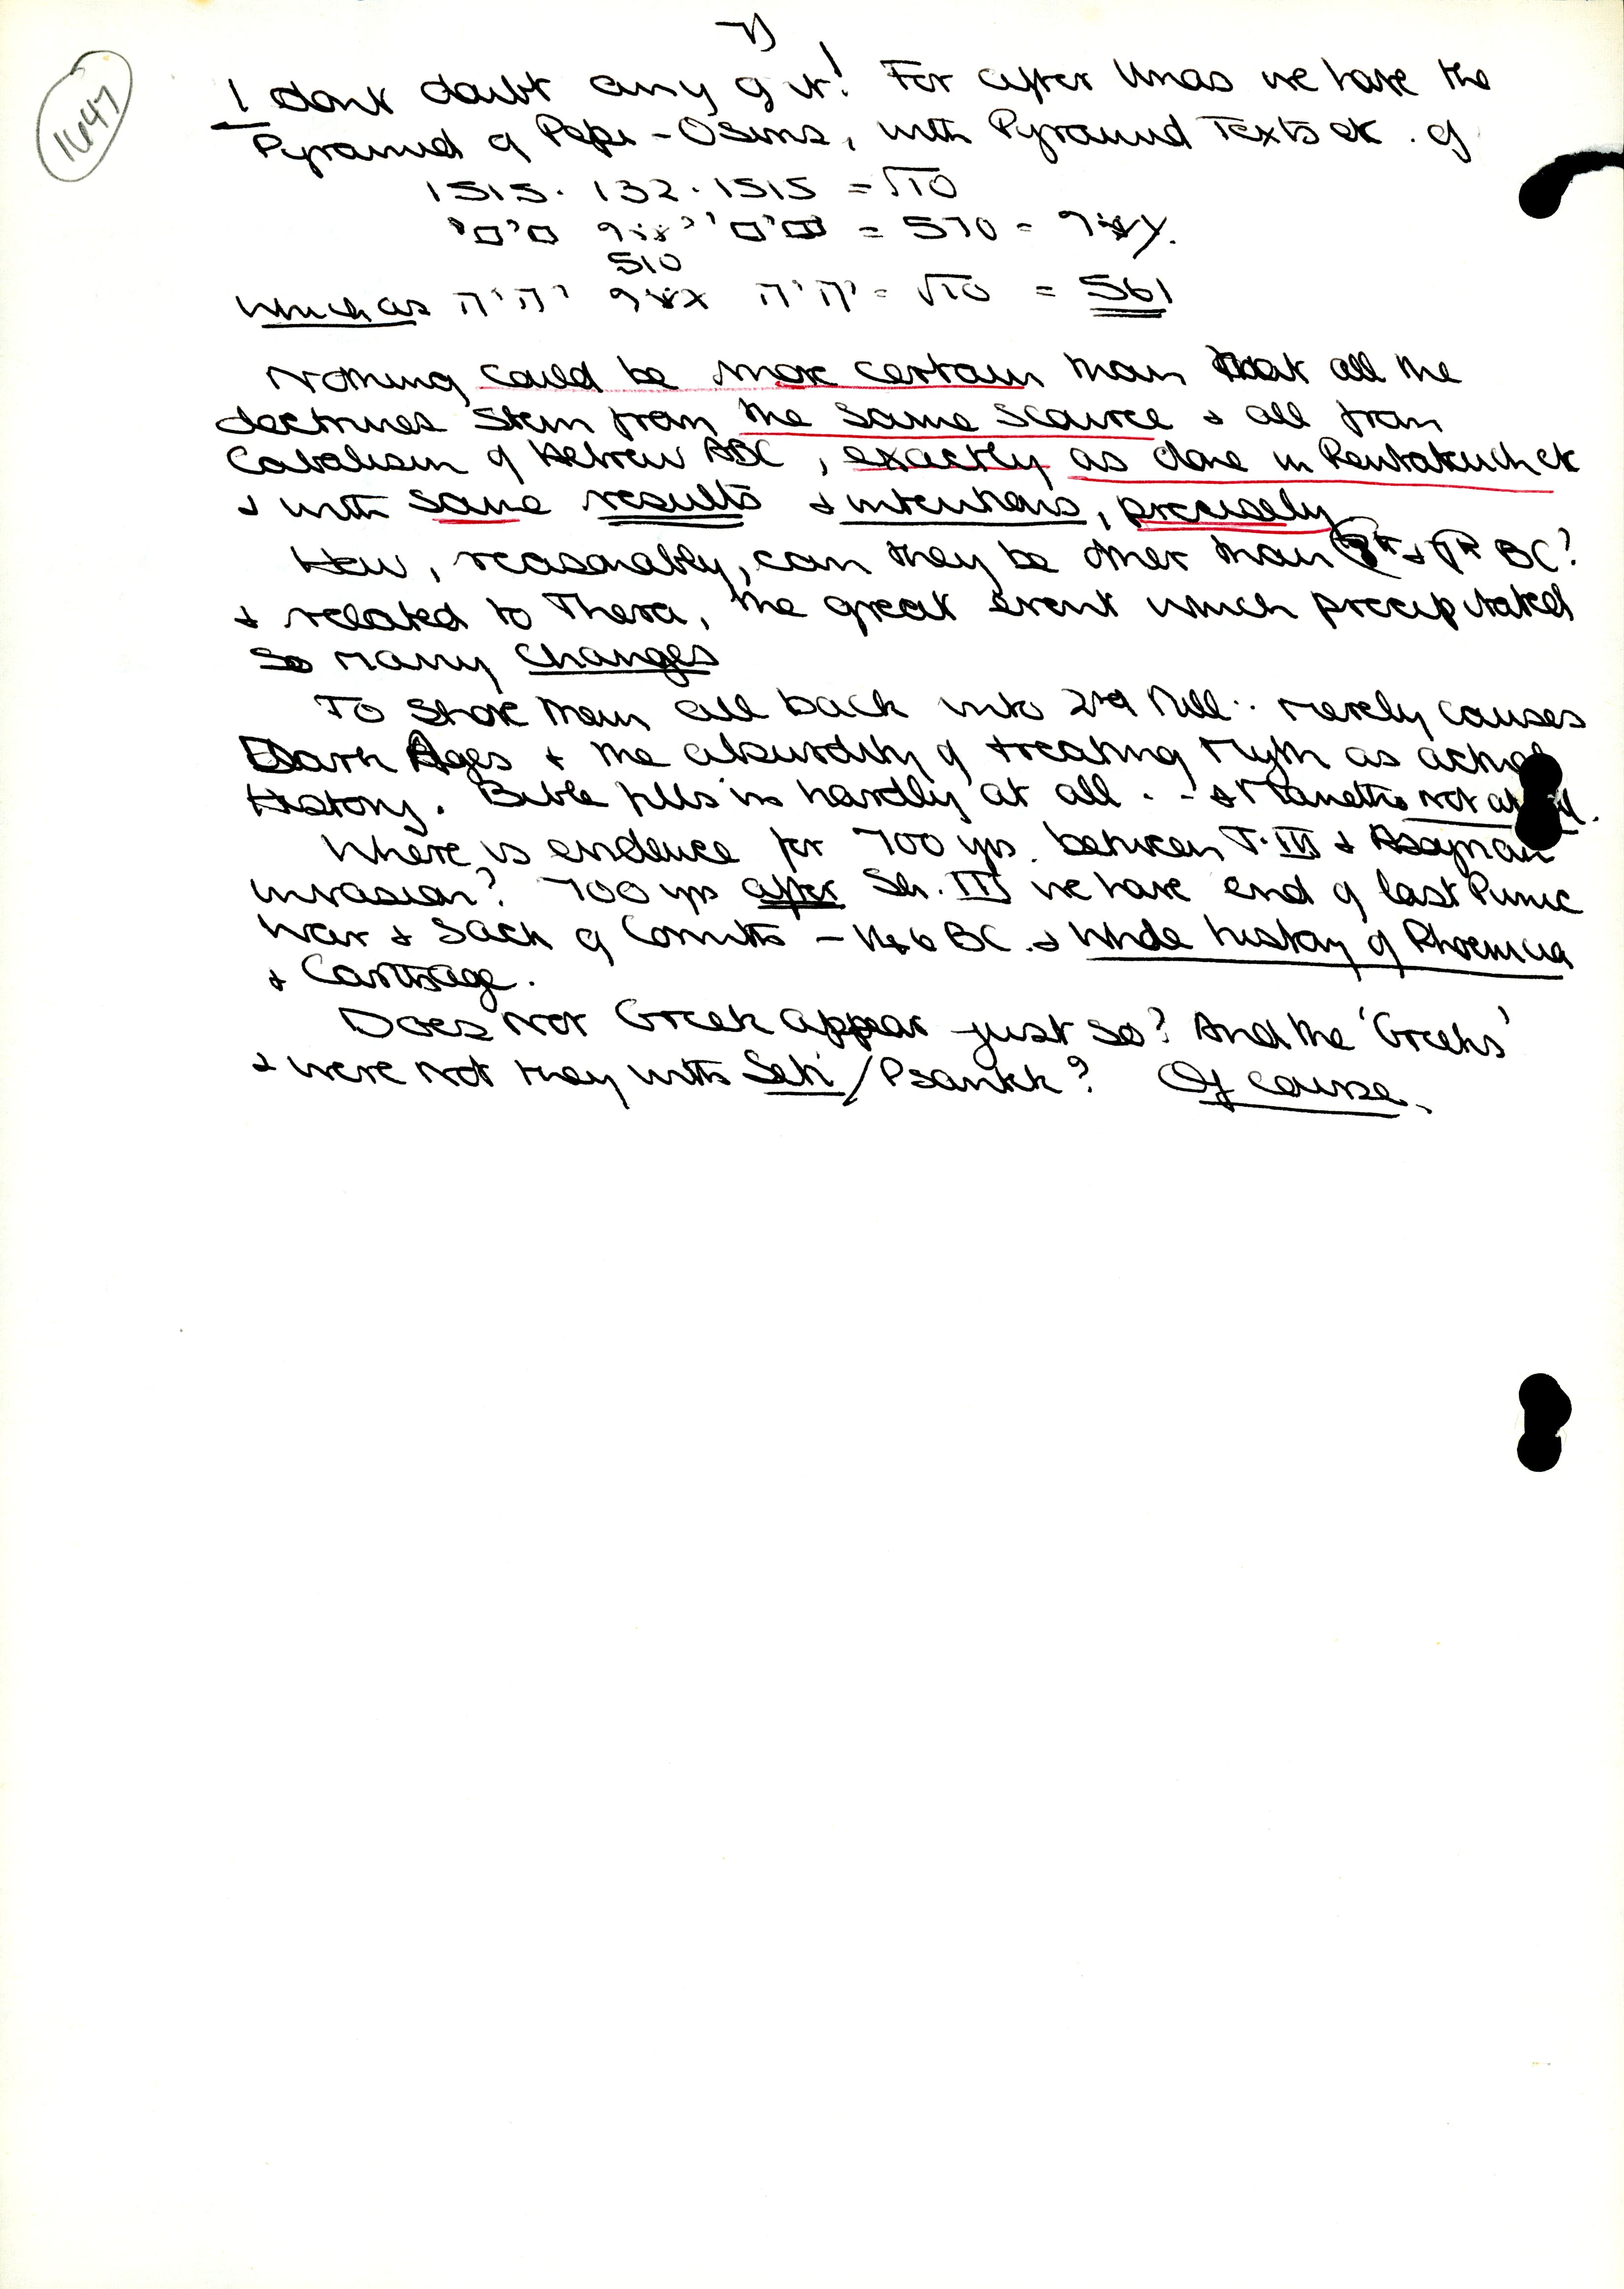 7)
1647
I dont doubt any of it! For after Unas we have the
Pyramid of Pepi-Osiris, with Pyramid Texts etc. of
1515. 132. 1515 = √10
= 570 =
510
Which as יהיה יהיה = √10 = 561
Nothing could be more certain than that all the
doctrines stem from the same source & all from
Cabalism of Hebrew ABC, exactly as done in Pentateuch etc
& with same results & intentions, precisely
How, reasonably, can they be other than & BC?
& related to Thera, the great event which precipitated
so many changes
To shove them all back into 2nd Mill.. merely causes
Dark Ages & the absurdity of treating Myth as actual
History. Bible fills in hardly at all .. & Manetho not at all.
Where is evidence for 700 yrs. between T.III & Assyrian
invasion? 700 yrs after Sh. III we have end of last Punic
War & Sack of Corinth - 146 BC. & whole history of Phoenicia
& Carthage.
Does not Greek appear just so? And the 'Greeks'
& were not they with Seti/Psamtk? Of course.